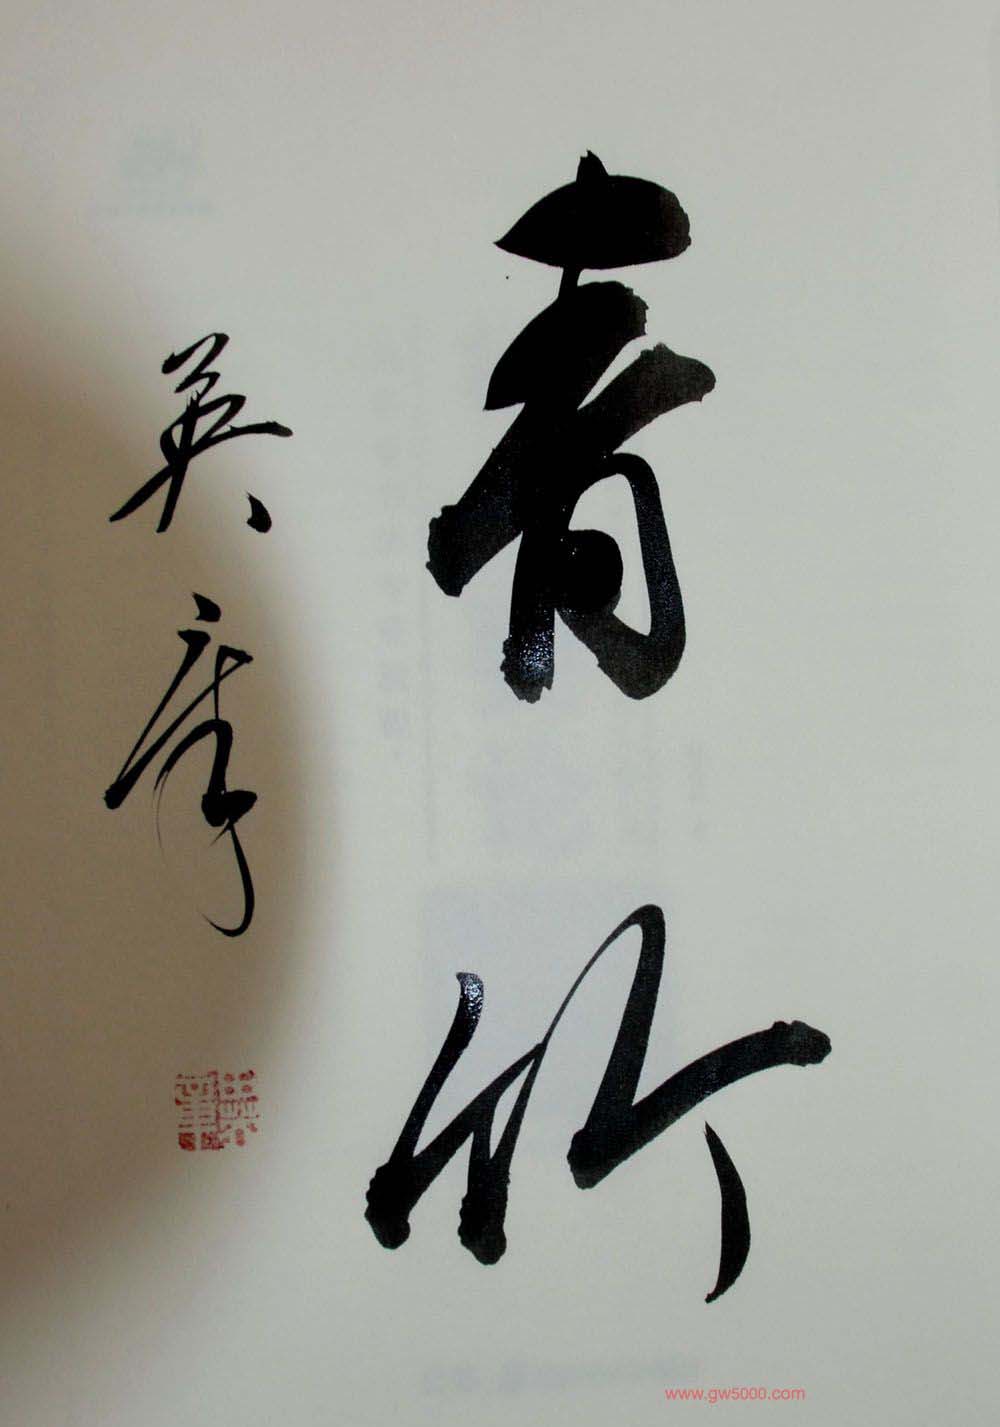 青竹
英
www.gw5000.com